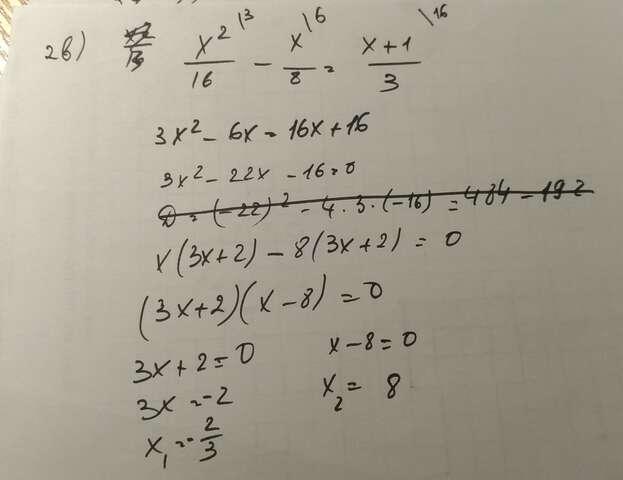 2в) x²/16 \3 - x/8 \6 = x+1/3 \16
3x² - 6x = 16x + 16
3x² - 22x - 16 = 0
D = (-22)² - 4 · 3 · (-16) = 484 - 192
x(3x+2) - 8(3x+2) = 0
(3x+2)(x-8) = 0
3x+2=0 x-8=0
3x = -2 x₂ = 8
x₁ = -2/3